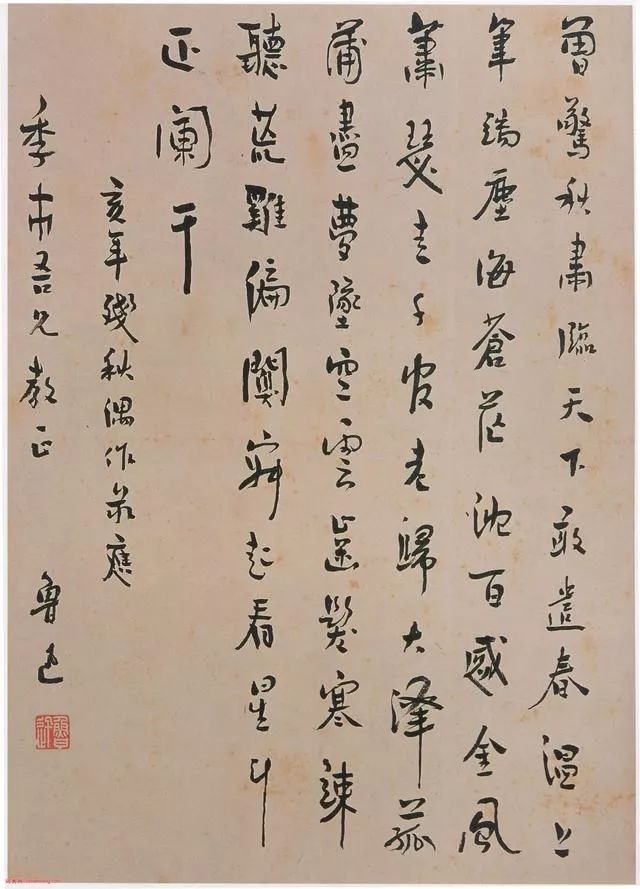 曾驚秋肅臨天下敢遣春溫上
筆端塵海蒼茫沈百感金風
蕭瑟走千官老歸大澤菰
蒲盡夢墜空雲齒髮寒竦
聽荒雞偏闃寂起看星斗
正闌干
亥年殘秋偶作录應
季市吾兄教正
魯迅
魯迅